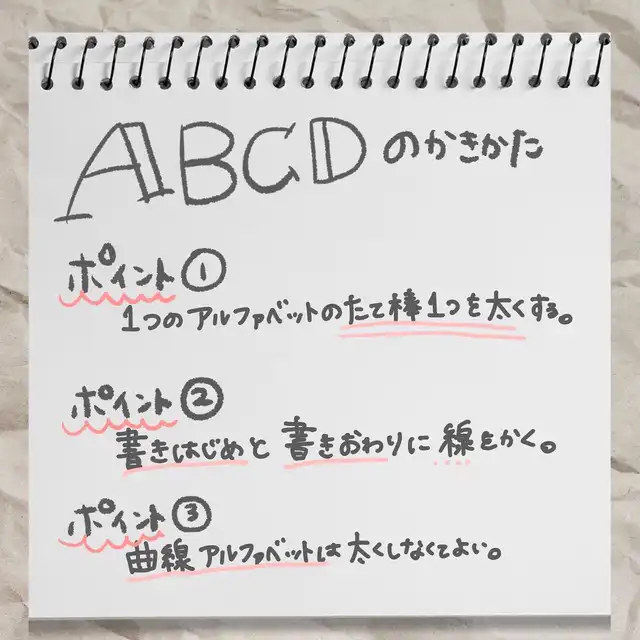 ABCDのかきかた
ポイント①
1つのアルファベットのたて棒1つを太くする。
ポイント②
書きはじめと書きおわりに線をかく。
ポイント③
曲線アルファベットは太くしなくてよい。